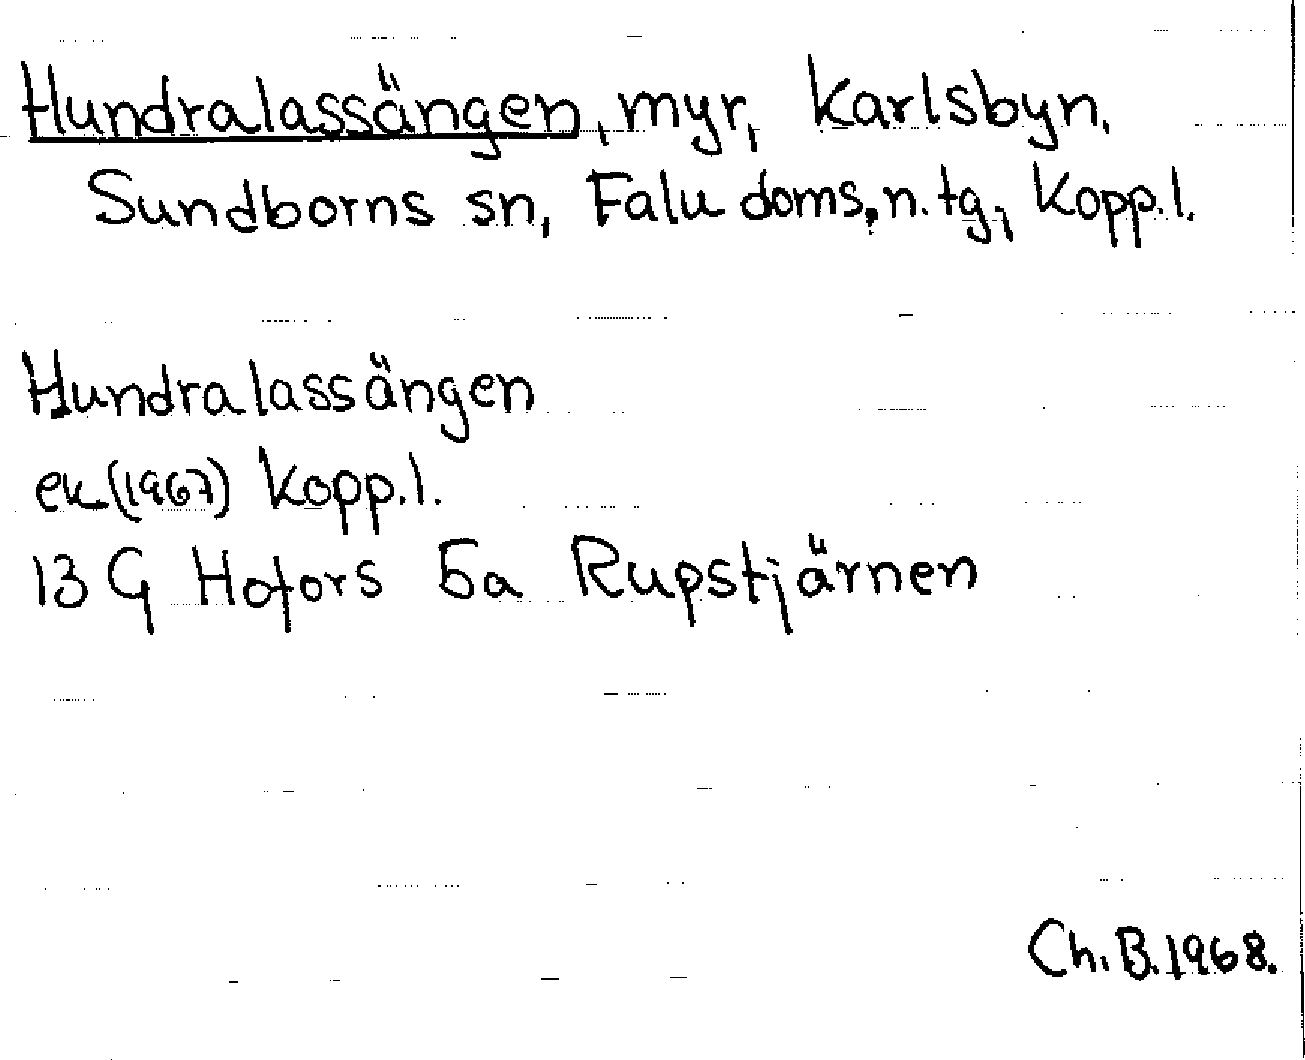 Hundralassängen, myr, Karlsbyn,
Sundborns sn, Falu doms, n. tg., Kopp. l.
Hundralassängen
ek (1967) Kopp. l.
13 G Hofors 5a Rupstjärnen
Ch. B. 1968.